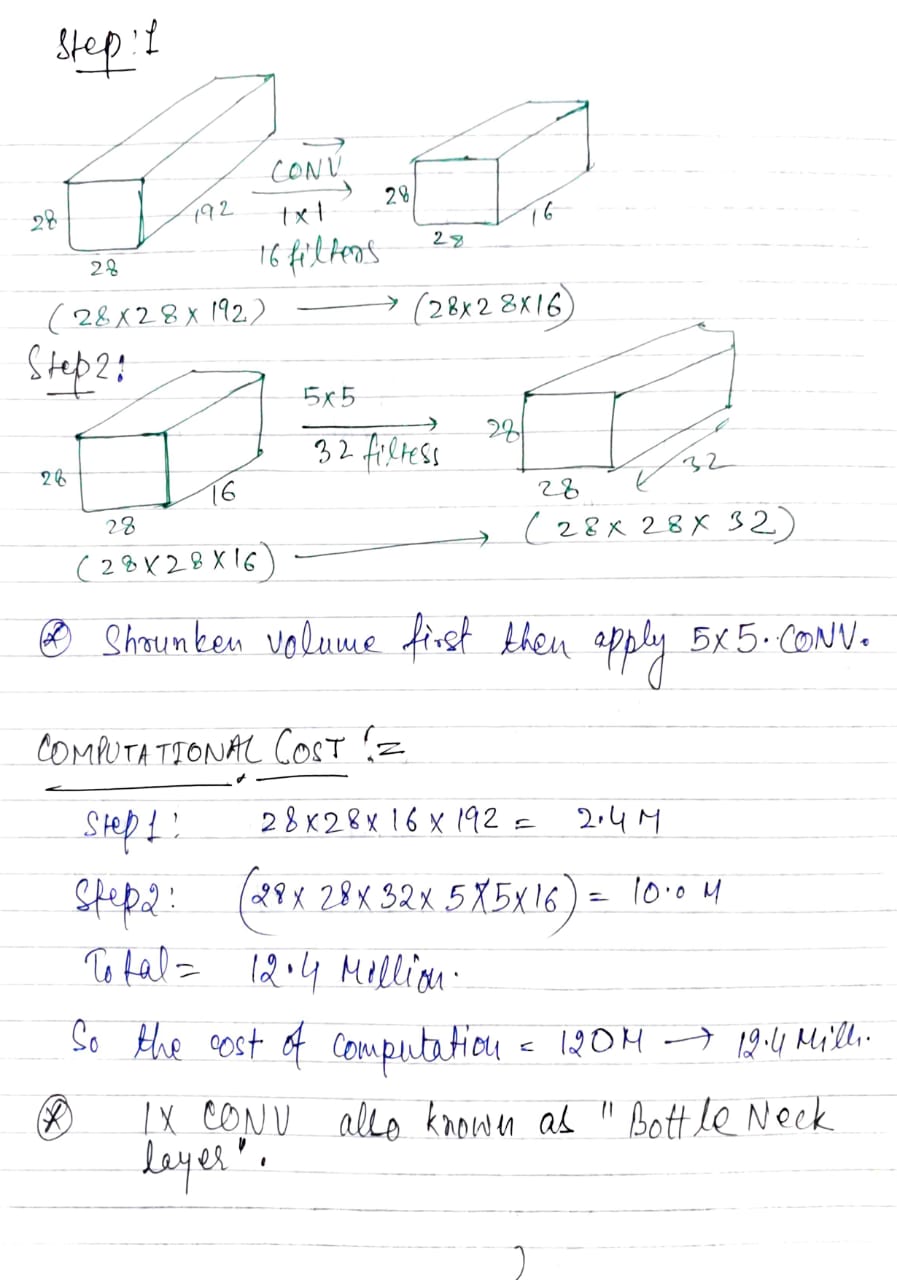 Step:1
CONV
28 192 1x1 28 16
28 16 filters 28
(28x28x192) → (28x28x16)
Step2:
5x5
28 16 32 filters 28 32
28 28
(28x28x16) → (28x28x32)
⊛ Shrunken volume first then apply 5x5. CONV.
COMPUTATIONAL COST :=
Step1: 28x28x16x192 = 2.4M
Step2: (28x28x32x5x5x16) = 10.0 M
Total = 12.4 Million.
So the cost of computation = 120M → 12.4 Milli.
⊛ 1X CONV also known as "Bottle Neck
layer".